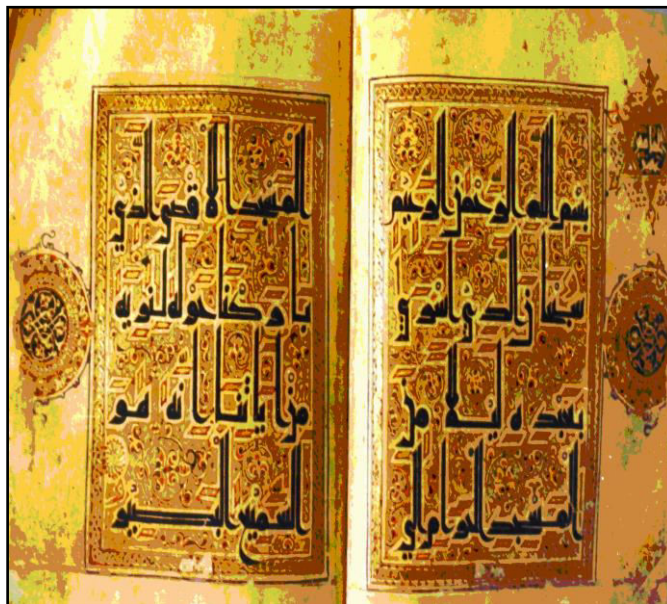 بسم الله الرحمن الرحيم
سبحان الذي اسرى
بعبده ليلا من
المسجد الحرام الى
المسجد الأقصى الذي
باركنا حوله لنريه
من اياتنا انه هو
السميع البصير